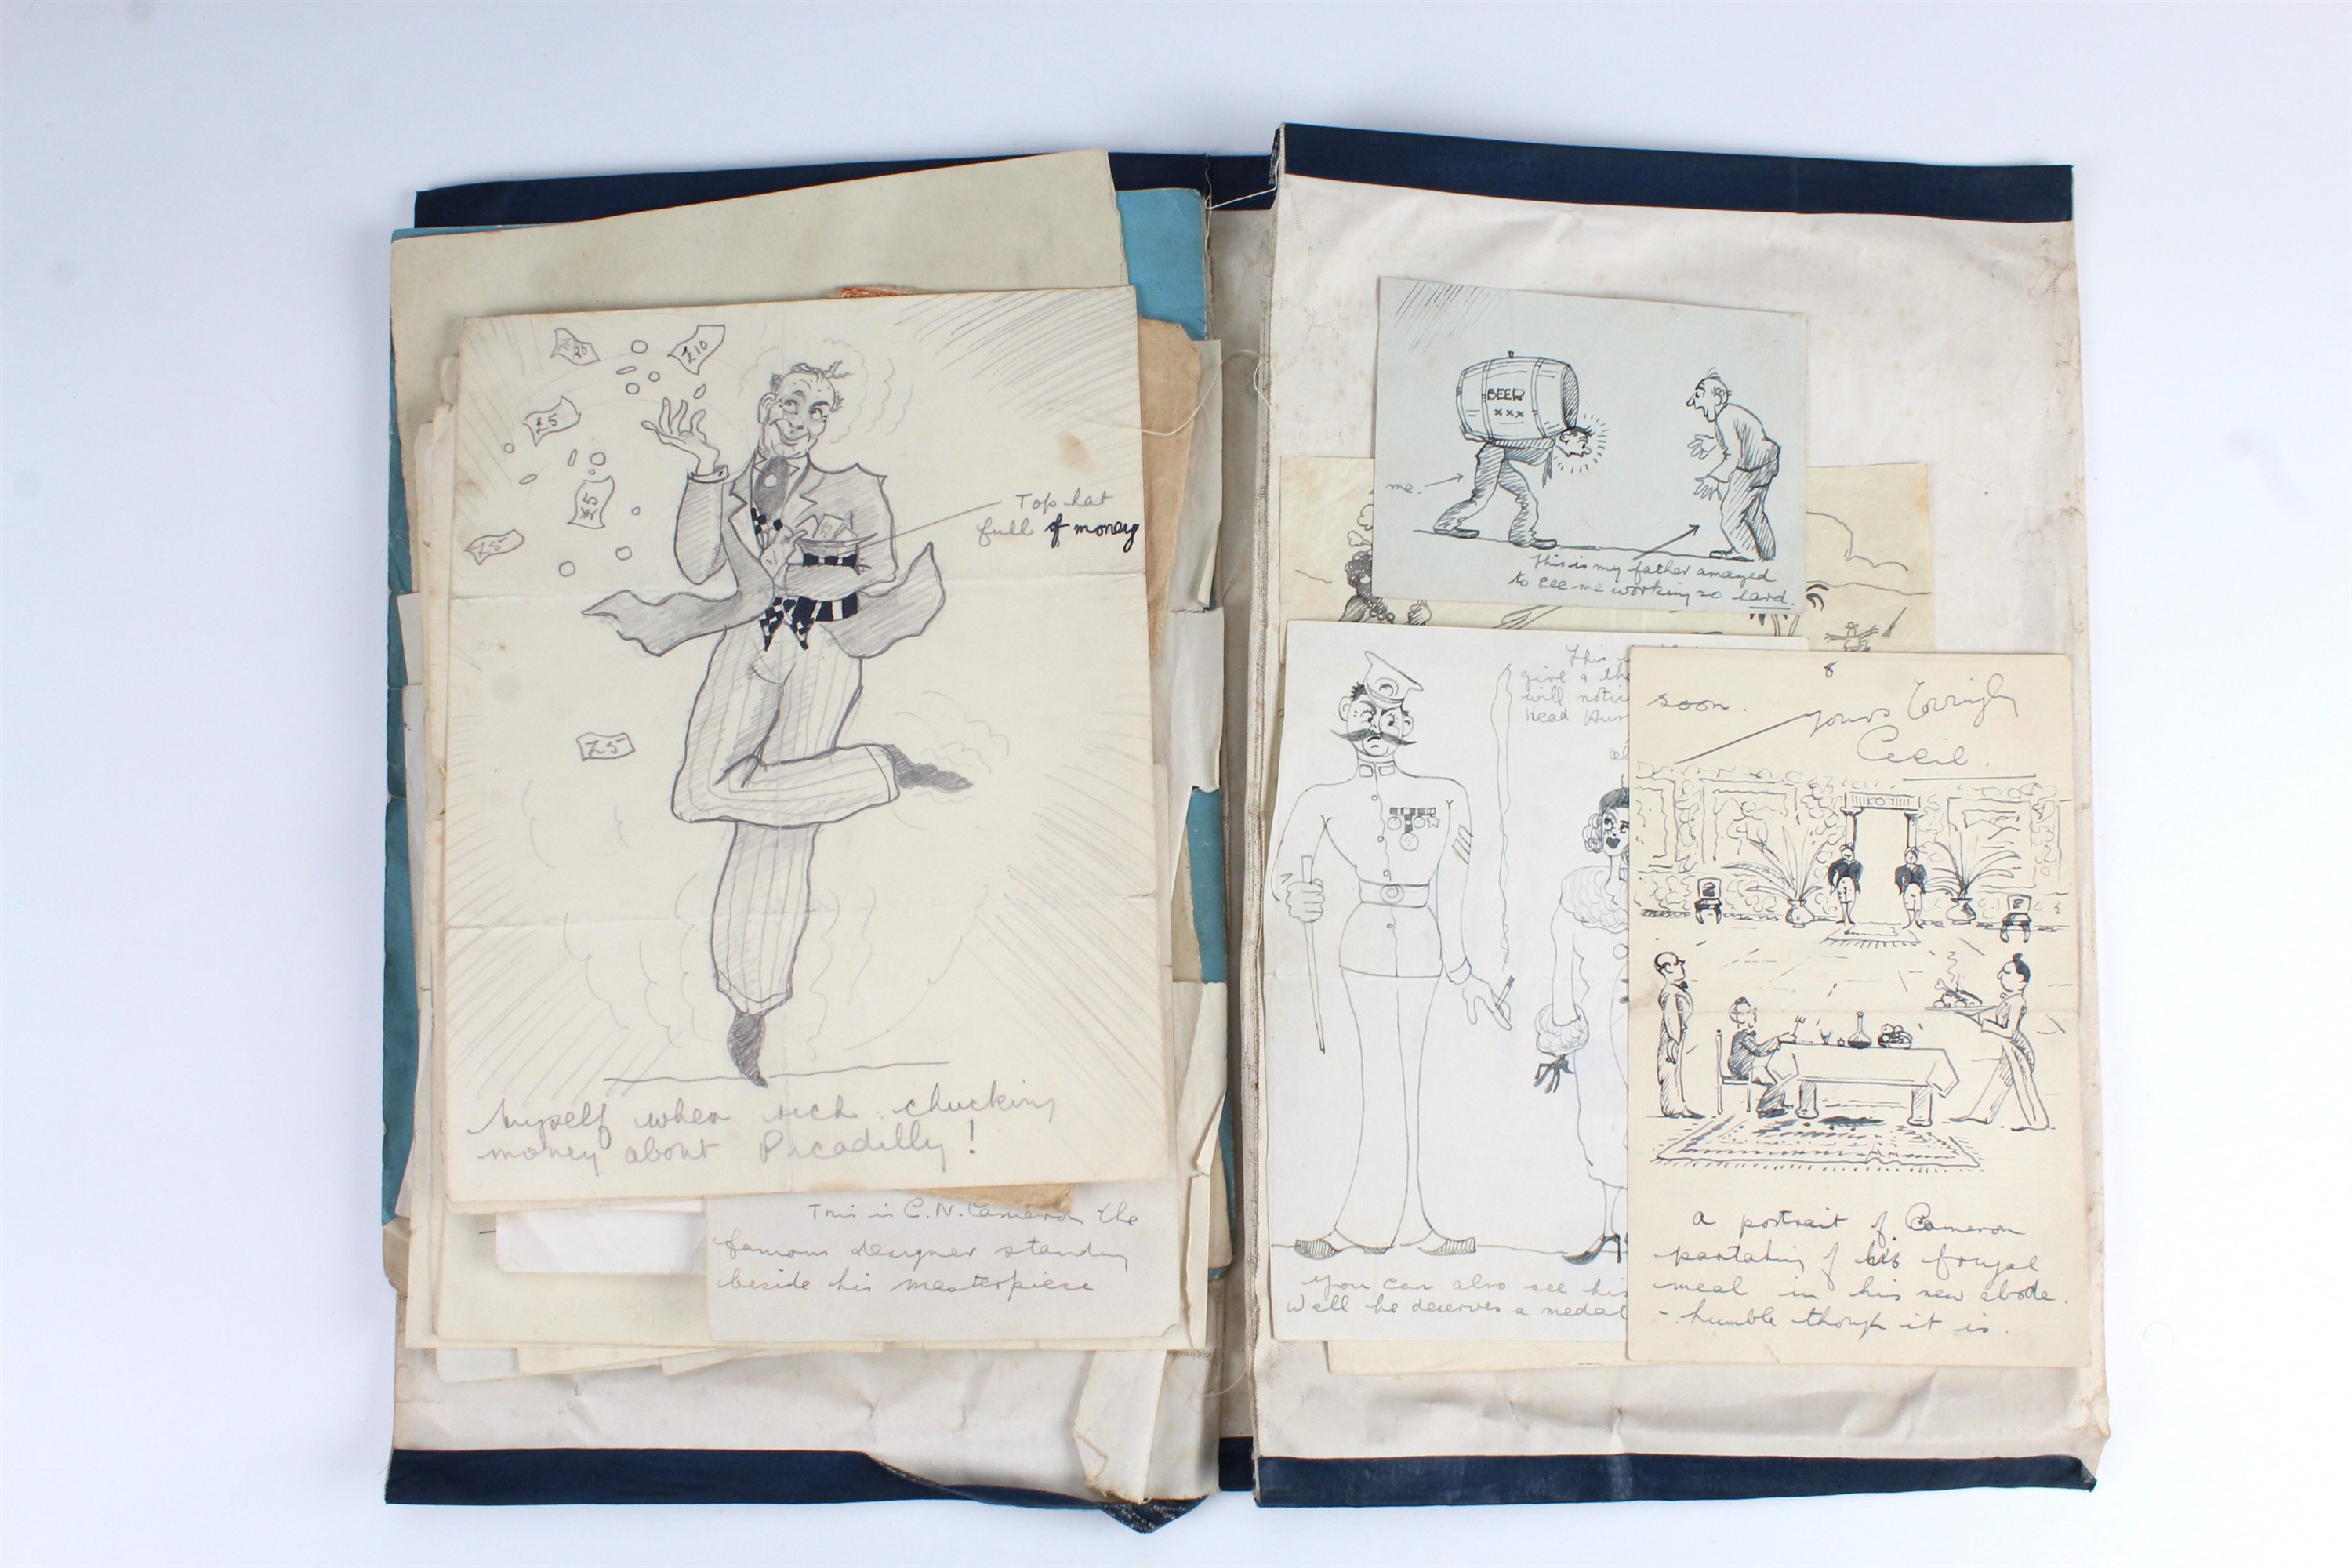 £20
£10
£5
£5
£5
£5
Top hat
full of money
Myself when rich chucking
money about Picadilly!
This is C.N. Cameron the
famous designer standing
beside his masterpiece
BEER
xxx
me.
This is my father amazed
to cee me working so hard.
This
give a
will
Head
You can also see his
Well he deserves a medal
8
soon.
Yours
Cecil.
a portrait of Cameron
partaking of his frugal
meal in his new abode.
- humble though it is.